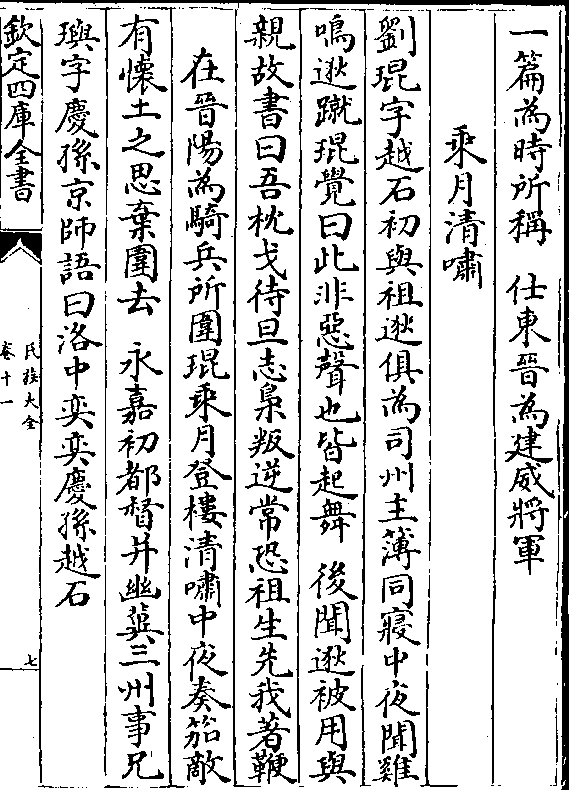 一篇為時所稱　仕東晉為建威將軍
乘月清嘯
劉琨字越石初與祖逖俱為司州主簿同寢中夜聞雞
鳴逖蹴琨覺曰此非惡聲也皆起舞　後聞逖被用與
親故書曰吾枕戈待旦志梟叛逆常恐祖生先我著鞭
在晉陽為騎兵所圍琨乘月登樓清嘯中夜奏笳敵
有懷土之思棄圍去　永嘉初都督并幽冀三州事兄
璵字慶孫京師語曰洛中奕奕慶孫越石
欽定四庫全書
氏族大全
卷十一
七